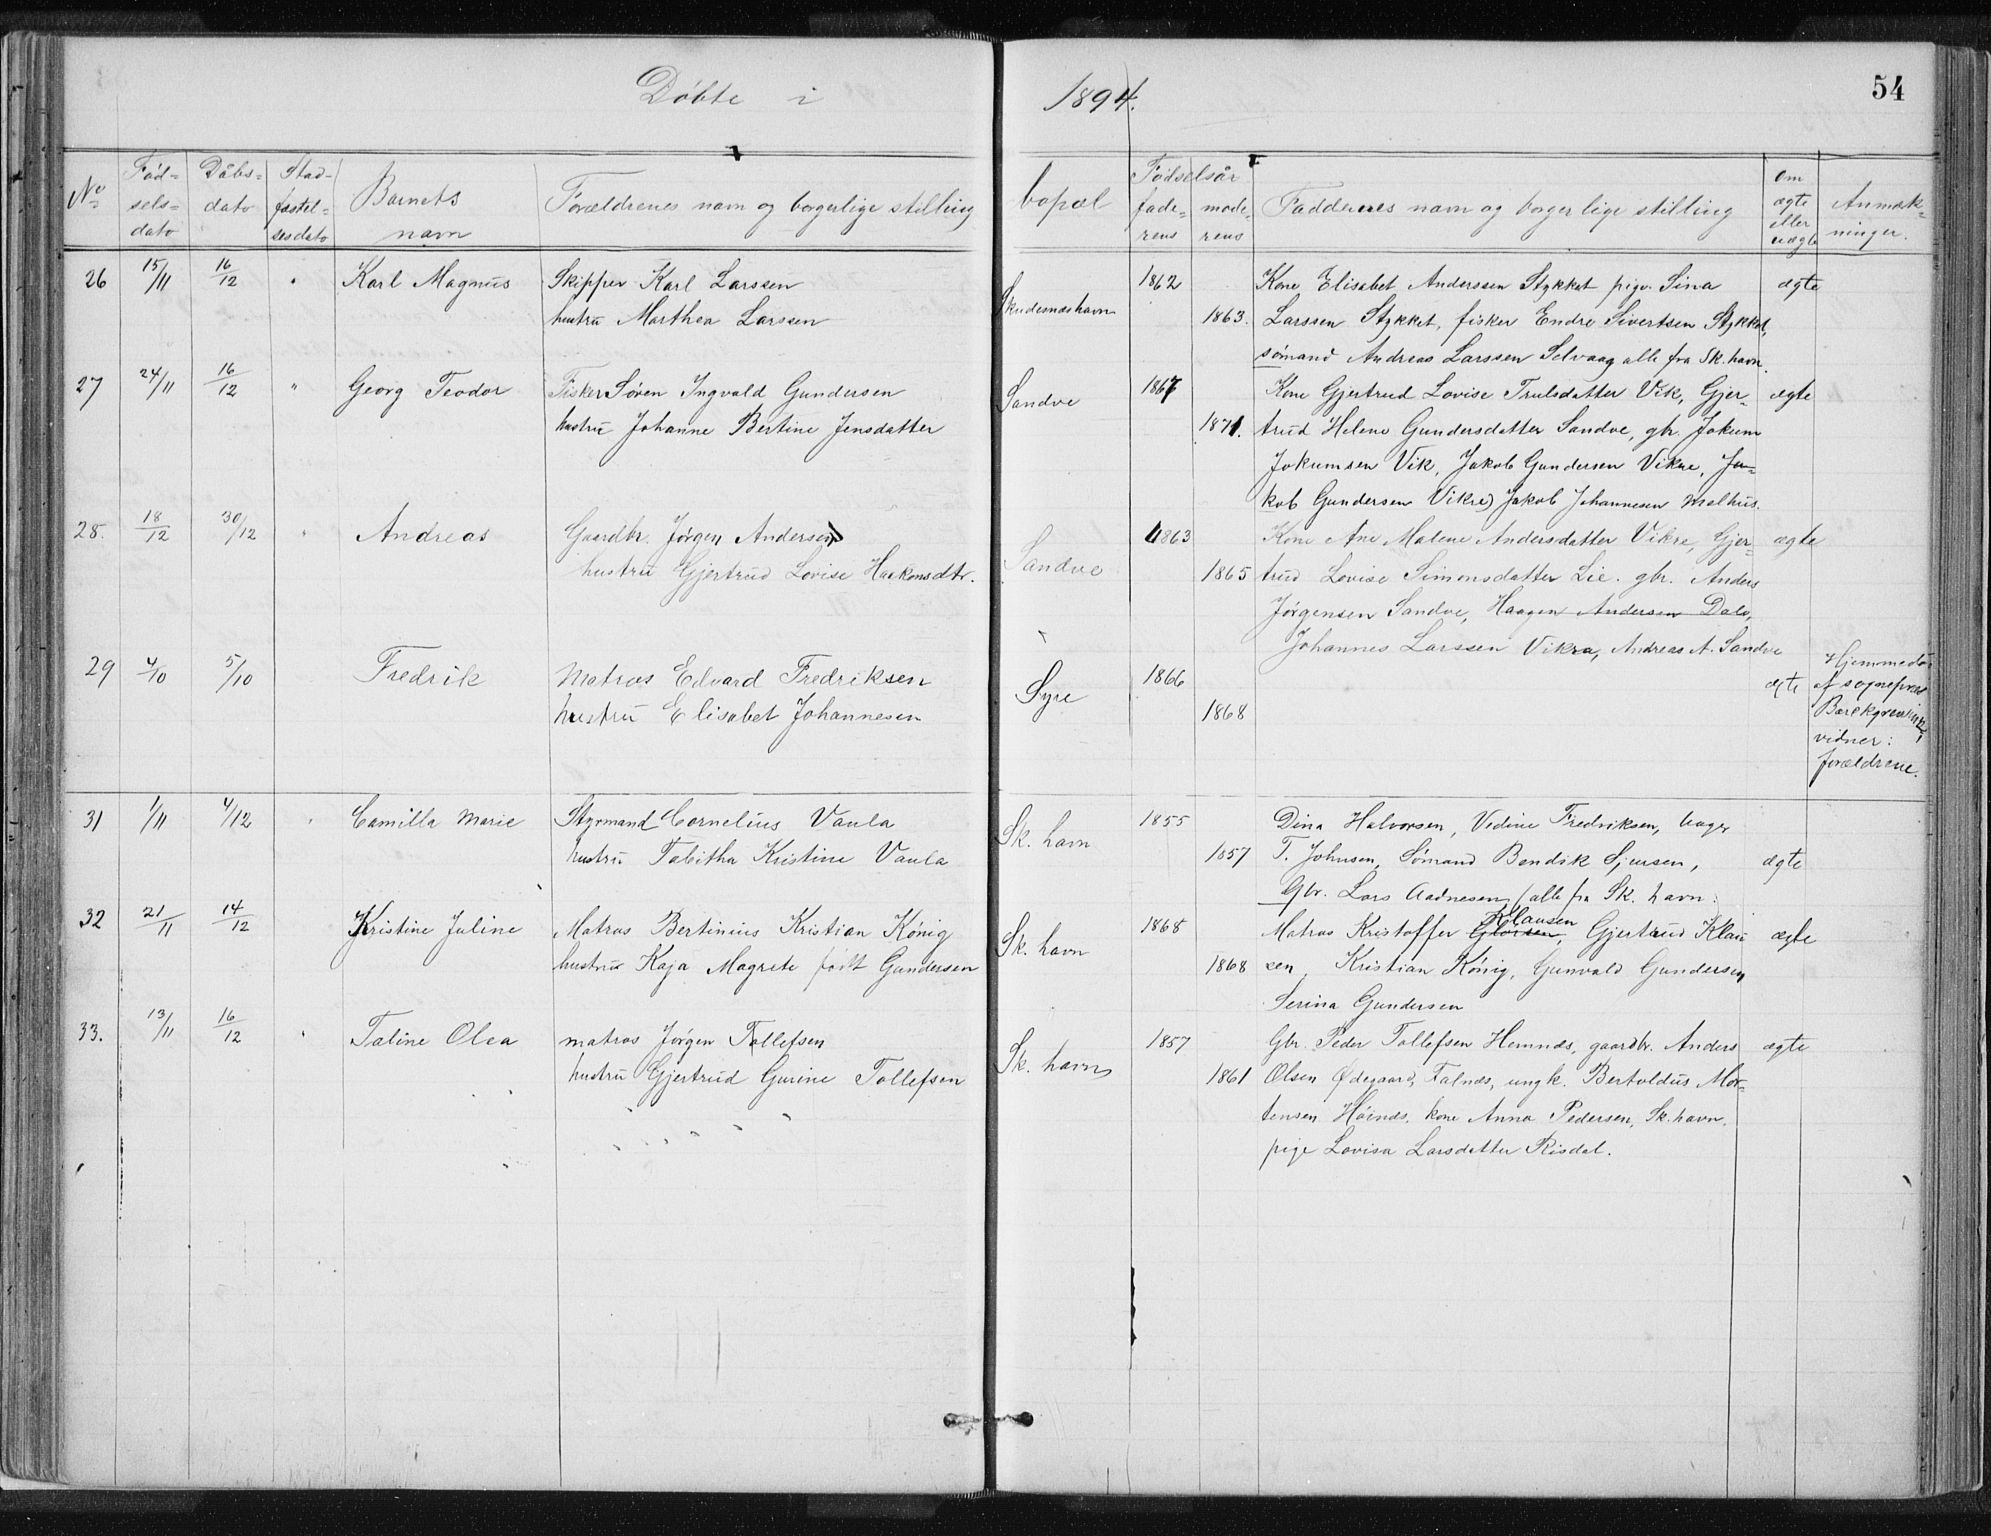 Döbte i 1894.
54
No
Fød=
sels=
dato
Dåbs=
dato
Stad=
fæstel=
sesdato
Barnets
navn
Forældrenes navn og borgerlige stilling
bopæl
Fødselsår
fade=
rens
mode=
rens
Faddernes navn og borgerlige stilling
om
ægte
eller
uægte
Anmærk=
ninger.
26 15/11 16/12 " Karl Magnus Skipper Karl Larssen
hustru Marthea Larssen
Skudesneshavn 1862
1863.
Kone Elisabet Anderssen Stykket pige Sina ægte
Larssen Stykket, fisker Endre Sivertsen Stykket,
sømand Andreas Larssen Selvaag alle fra Sk. havn.
27 24/11 16/12 " Georg Teodor Fisker Søren Ingvald Gundersen
hustru Johanne Bertine Jensdatter
Sandve 1867
1871.
Kone Gjertrud Lovise Trulsdatter Vik, Gjer= ægte
trud Helene Gundersdatter Sandve, gbr. Jokum
Jokumsen Vik, Jakob Gundersen Vikre, Ja=
kob Gundersen Vikre) Jakob Johannesen Melhus.
28. 18/12 30/12 " Andreas Gaardbr. Jørgen Andersen
hustru Gjertrud Lovise Haakonsdtr.
Sandve 1863
1865
Kone Ane Malene Andersdatter Vikre, Gjer= ægte
trud Lovise Simonsdatter Lie. gbr. Anders
Jørgensen Sandve, Haagen Andersen Dale,
Johannes Larssen Vikra, Andreas A. Sandve
29 4/10 5/10 Fredrik Matros Edvard Fredriksen
hustru Elisabet Johannesen
Syre 1866
1868
ægte
Hjemmedø
af sogneprest
vidner:
forældrene.
31 1/11 4/12 " Camilla Marie Styrmand Cornelius Vaula
hustru Tabitha Kristine Vaula
Sk. havn 1855
1857
Dina Halvorsen, Vidine Fredriksen, bager
T. Johnsen, Sömand Bendik Sjursen, ægte
Gbr. Lars Aadnesen (alle fra Sk. havn.
32 21/11 14/12 Kristine Juline Matros Bertinius Kristian König
hustru Kaja Magrete födt Gundersen
Sk. havn 1868
1868
Klausen
Matros Kristoffer Glörsen, Gjertrud Klau ægte
sen, Kristian König, Gunvald Gundersen
Serina Gundersen
33. 13/11 16/12 " Taline Olea matros Jörgen Tollefsen
hustru Gjertrud Gurine Tollefsen
Sk. havn 1857
1861
Gbr. Peder Tollefsen Hemnæs, gaardbr. Anders ægte
Olsen Ødegaard, Falnæs, ungk. Bertoldus Mor=
tensen Höinæs, kone Anna Pedersen, Sk. havn,
pige Lovisa Larsdatter Risdal.